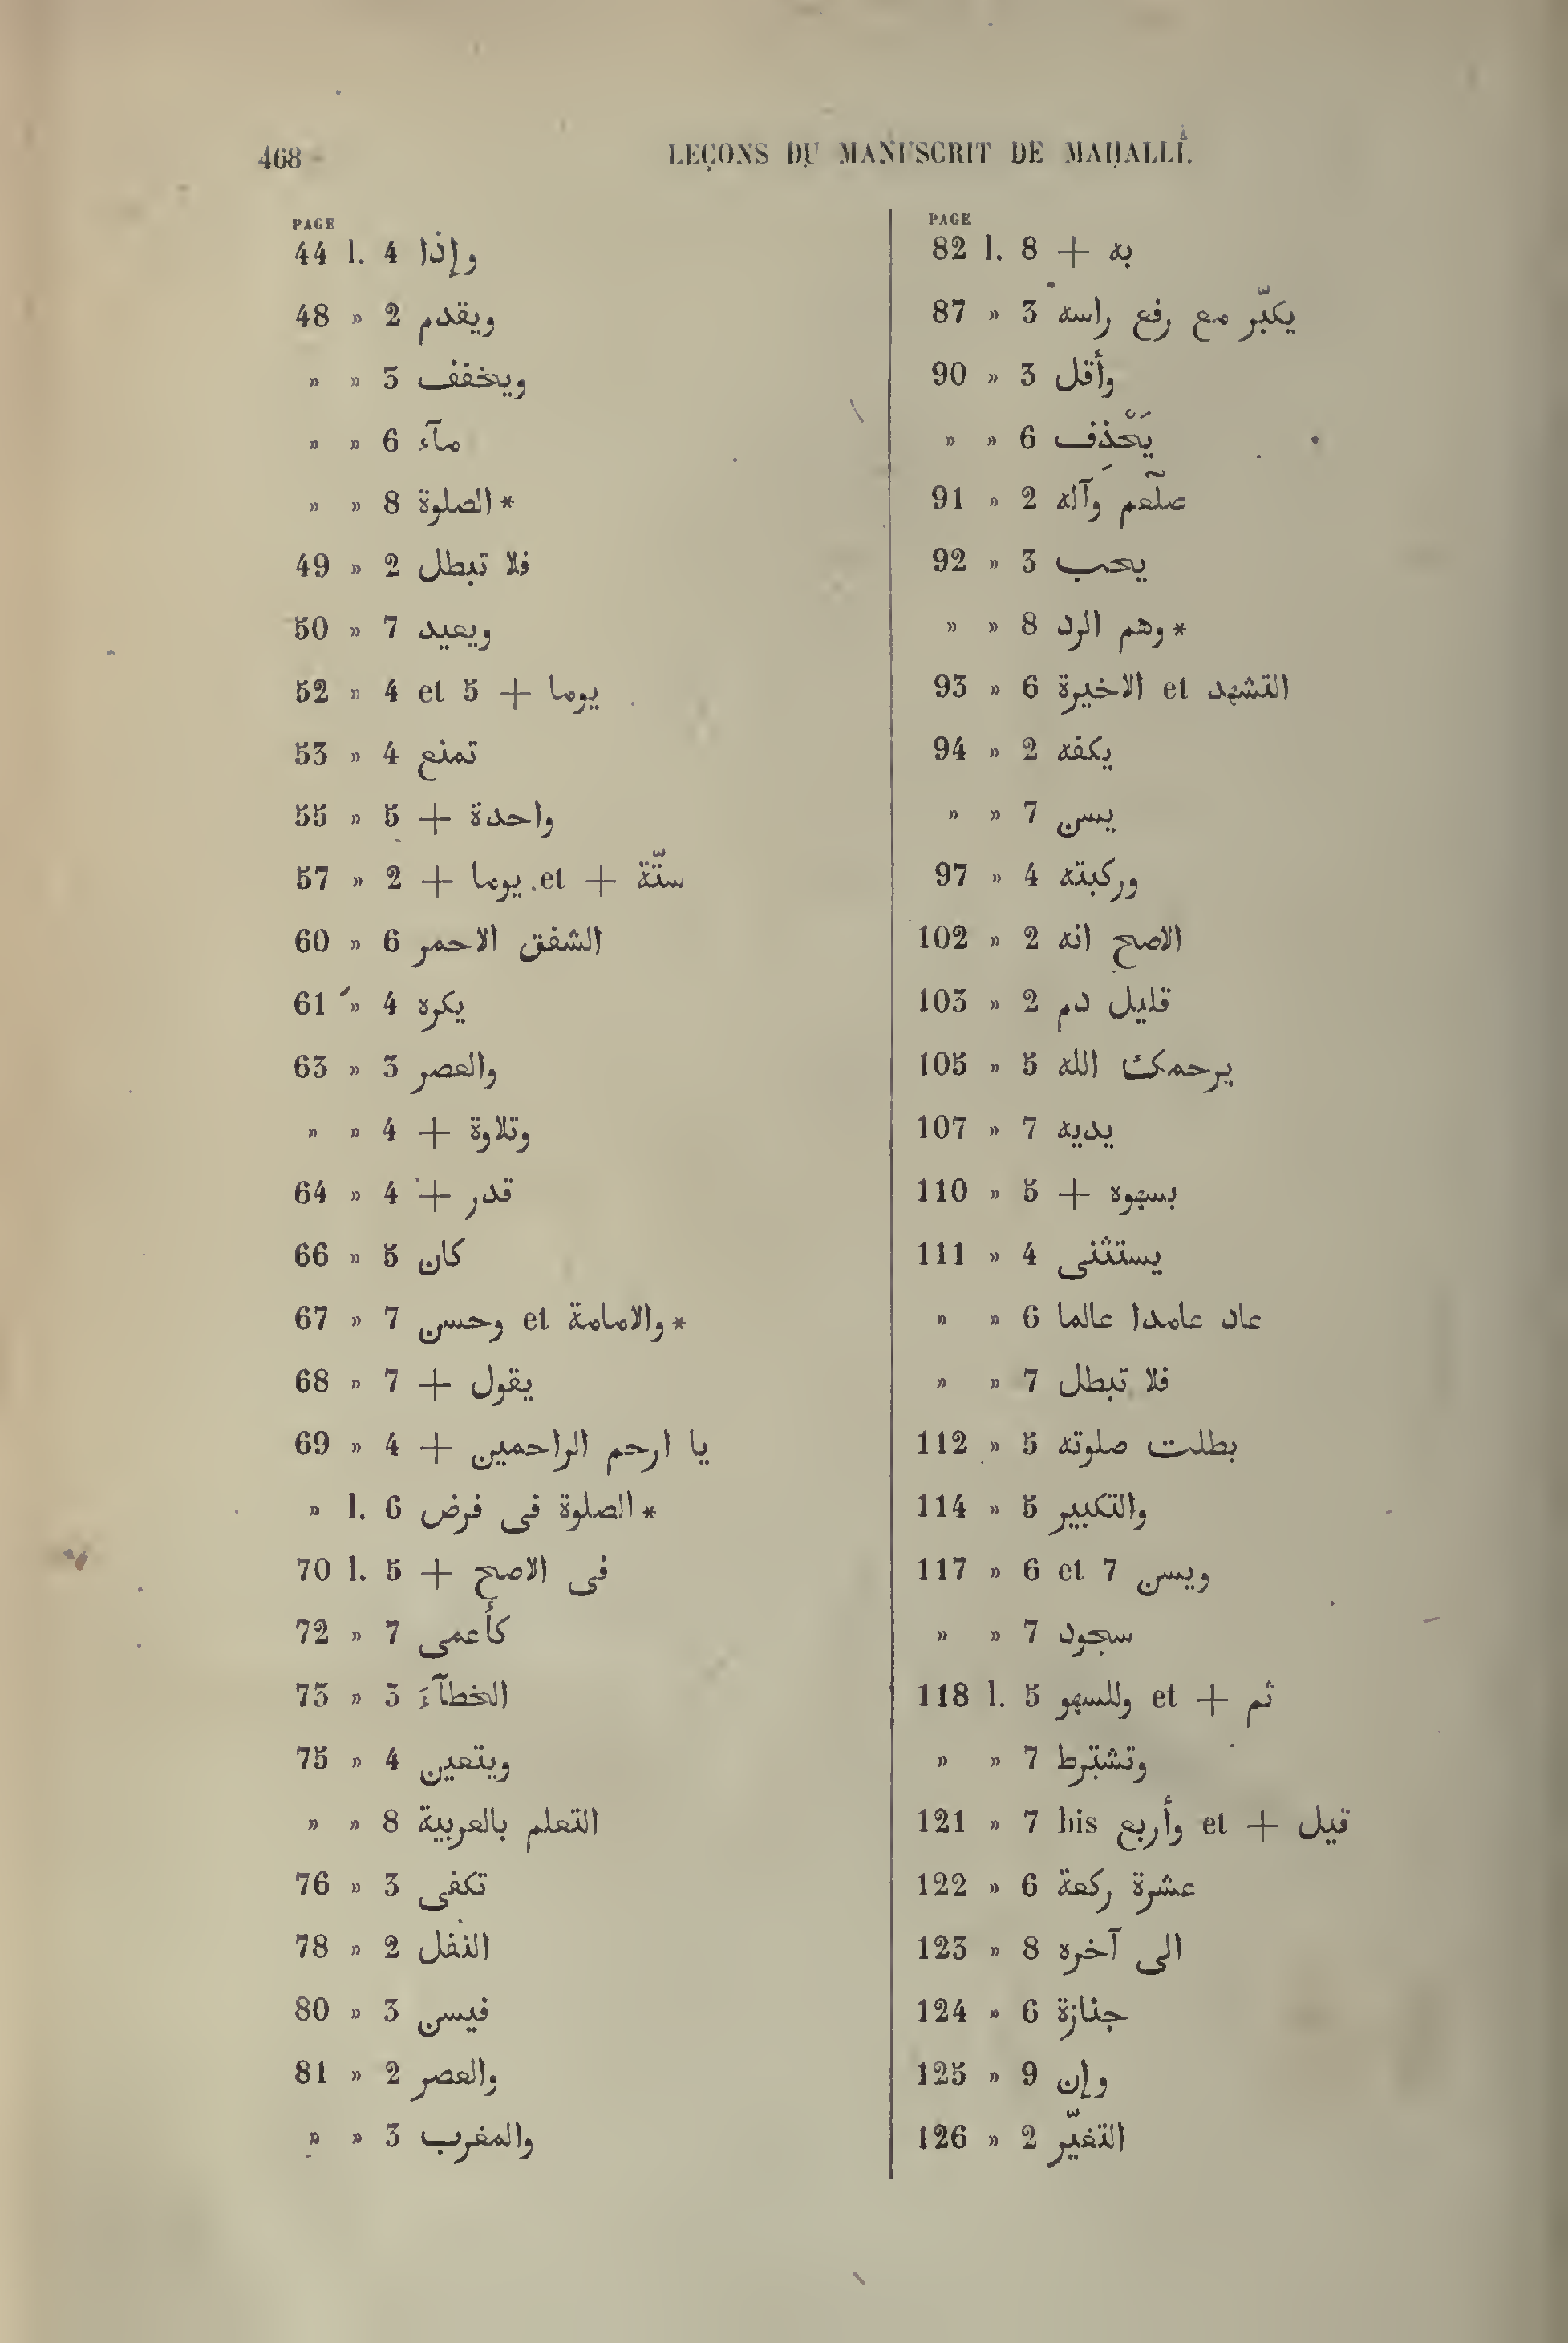 468 LEÇONS DU MANUSCRIT DE MAḤALLÎ.
PAGE
44 l. 4 وإذا
48 » 2 ويقدم
» » 3 ويخفف
» » 6 مآء
» » 8 الصلوة *
49 » 2 فلا تبطل
50 » 7 ويعيد
52 » 4 et 5 + يوما
53 » 4 تمنع
55 » 5 + واحدة
57 » 2 + يوما et + ستّة
60 » 6 الشفق الاحمر
61 » 4 يكره
63 » 3 والعصر
» » 4 + وتلاوة
64 » 4 + قدر
66 » 5 كان
67 » 7 وحسن et والامامة *
68 » 7 + يقول
69 » 4 + يا ارحم الراحمين
» l. 6 الصلوة فى فرض *
70 l. 5 + فى الاصح
72 » 7 كأعمى
73 » 3 الخطآءَ
75 » 4 ويتعين
» » 8 التعلم بالعربية
76 » 3 تكفى
78 » 2 النفل
80 » 3 فيسن
81 » 2 والعصر
» » 3 والمغرب
PAGE
82 l. 8 + به
87 » 3 يكبّر مع رفع راسه
90 » 3 وأقل
» » 6 يَحْذِف
91 » 2 صلّعم وآله
92 » 3 يحب
» » 8 وهم الرد *
93 » 6 الاخيرة et التشهد
94 » 2 يكفه
» » 7 يسن
97 » 4 وركبته
102 » 2 الاصح انه
103 » 2 قليل دم
105 » 5 يرحمك الله
107 » 7 يديه
110 » 5 + بسهوه
111 » 4 يستثنى
» » 6 عاد عامدا عالما
» » 7 فلا تبطل
112 » 5 بطلت صلوته
114 » 5 والتكبير
117 » 6 et 7 ويسن
» » 7 سجود
118 l. 5 وللسهو et + ثم
» » 7 وتشترط
121 » 7 bis وأربع et + قيل
122 » 6 عشرة ركعة
123 » 8 الى آخره
124 » 6 جنازة
125 » 9 وإن
126 » 2 التغيّر